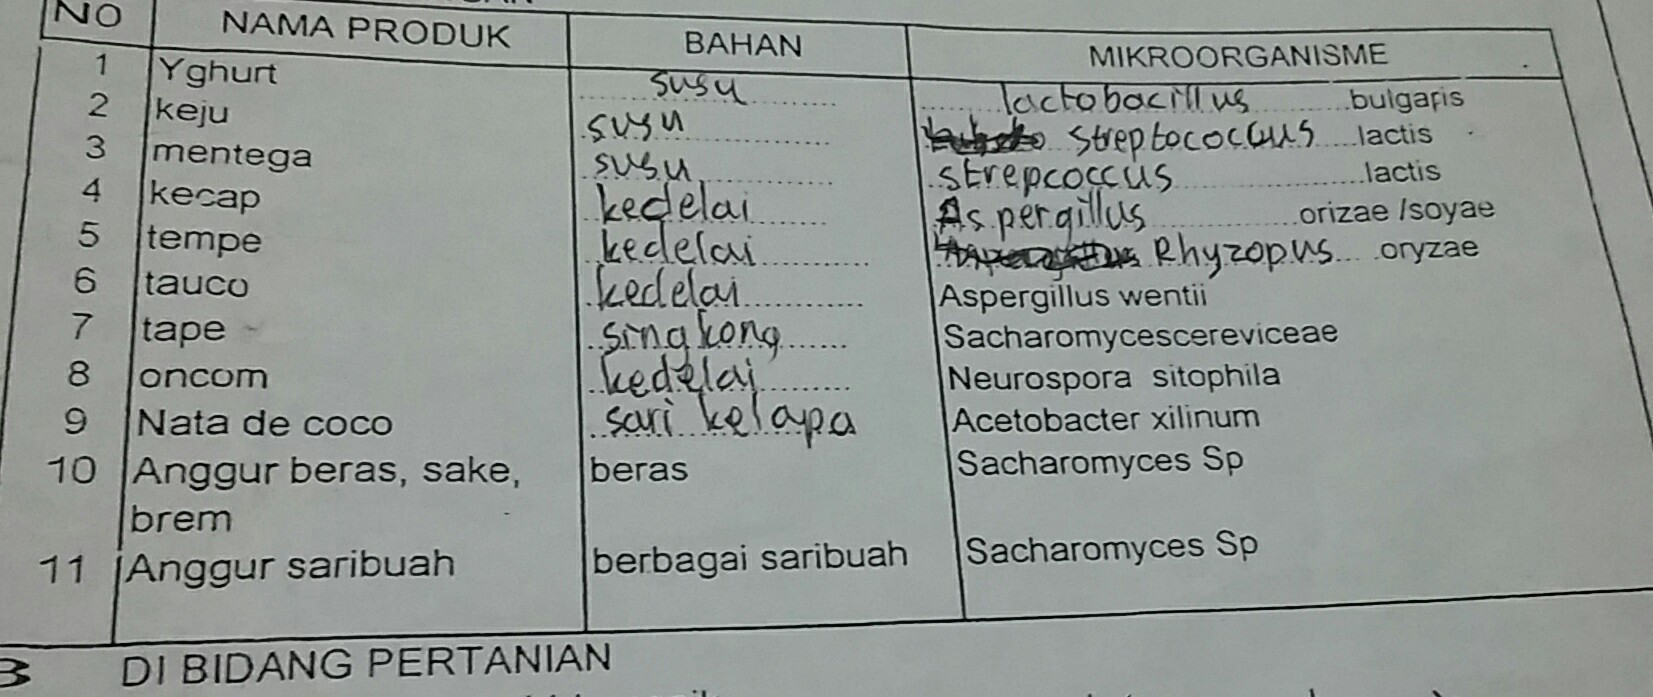 NO NAMA PRODUK BAHAN MIKROORGANISME
1 Yghurt susu lactobacillus bulgaris
2 keju susu streptococcus lactis
3 mentega susu strepcoccus lactis
4 kecap kedelai Aspergillus orizae /soyae
5 tempe kedelai Rhyzopus oryzae
6 tauco kedelai Aspergillus wentii
7 tape singkong Sacharomycescereviceae
8 oncom kedelai Neurospora sitophila
9 Nata de coco sari kelapa Acetobacter xilinum
10 Anggur beras, sake, beras Sacharomyces Sp
brem
11 Anggur saribuah berbagai saribuah Sacharomyces Sp
B DI BIDANG PERTANIAN